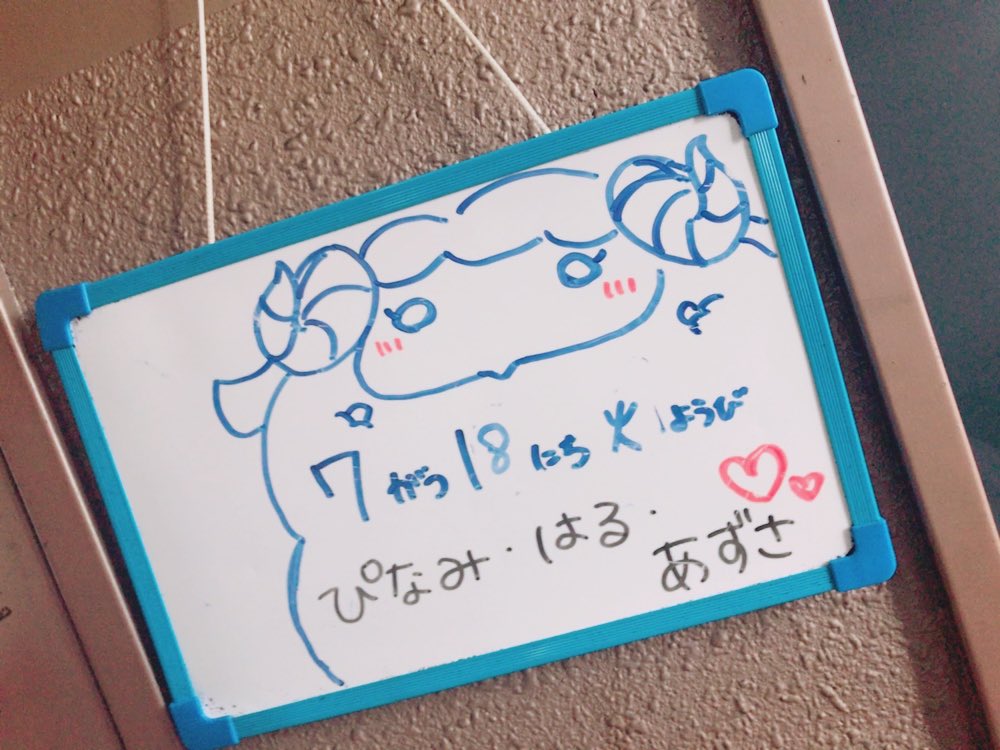 7がつ18にち火ようび
ぴなみ・はる・あずさ